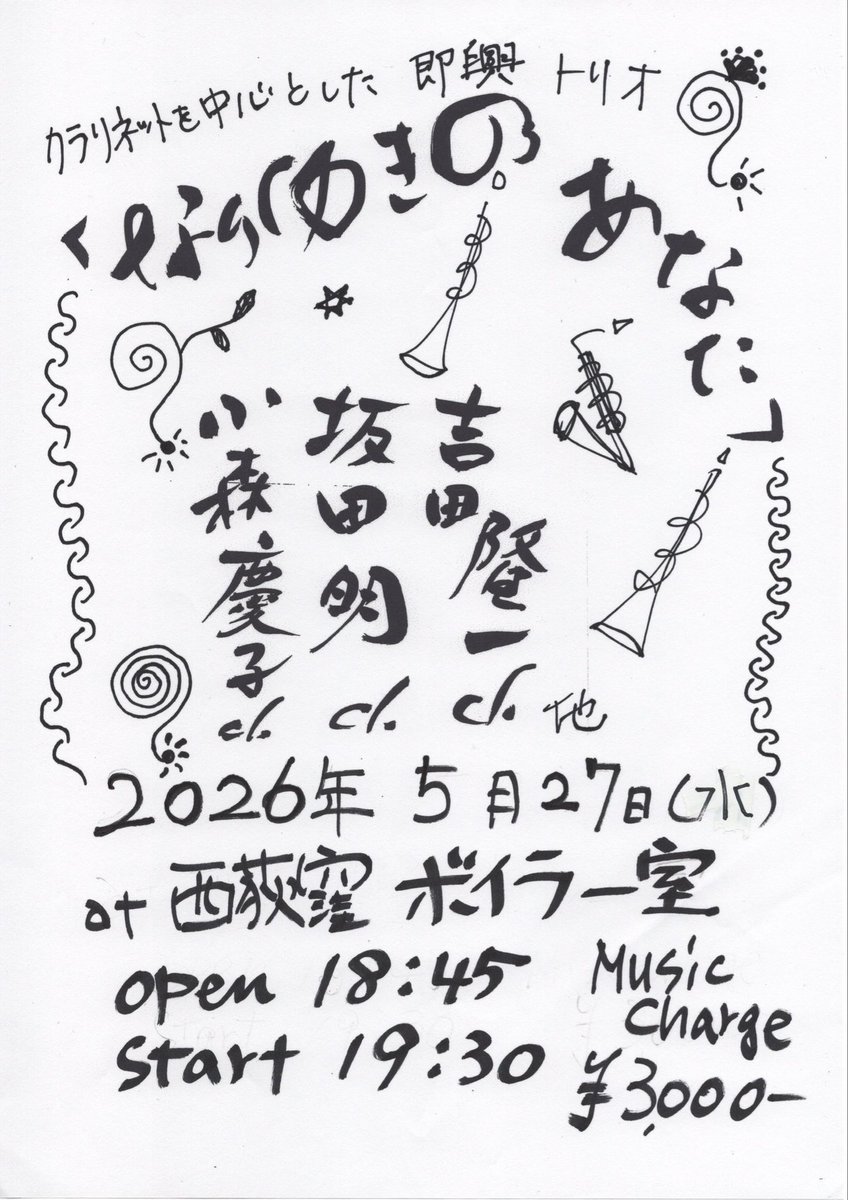 クラリネットを中心とした 即興 トリオ
「なりゆきの あなた」
吉田隆一 cl. 他
坂田明 cl.
小森慶子 cl.
2026年 5月27日(水)
at 西荻窪 ボイラー室
open 18:45
Start 19:30
Music
Charge
¥3,000-